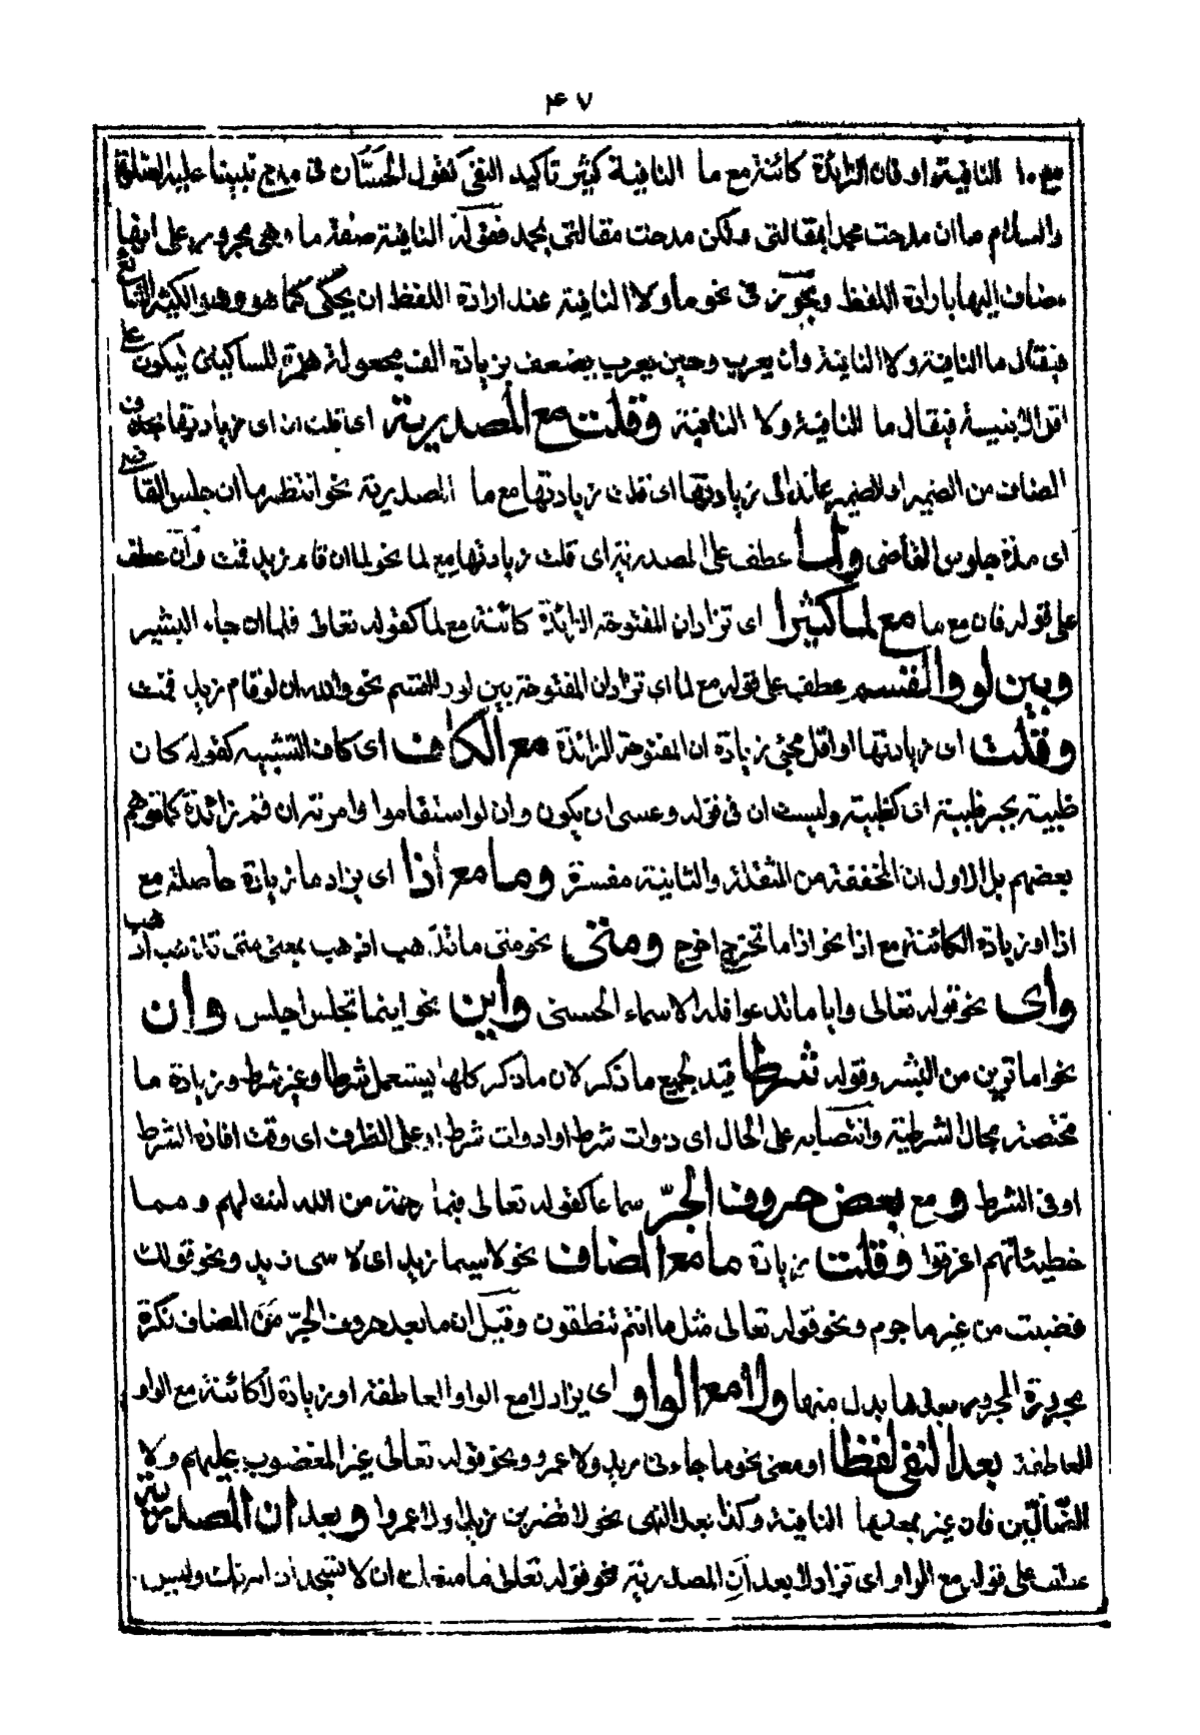 ٤٧
مع ما النافية او فان الزائدة كائنة مع ما النافية كثير تاكيد النفى كقول الحسّان فى مدح نبينا عليه الصلوة
والسلام ما ان مدحت محمدا بمقالتى ولكن مدحت مقالتى بمحمد فقوله النافية صفة ما وهى مجرورة على انها
مضاف اليها بارادة اللفظ ويجوز فى نحو ما ولا النافية عند ارادة اللفظ ان يحكى كما هو وهو الكثير الشائع
فيقال ما النافية ولا النافية وان يعرب وحين يعرب يضعف بزيادة الف مجعولة همزة للساكنين ليكون على
اقل الابنية فيقال ما النافية ولا النافية وقلت مع المصدرية اى قلت ان اى زيادتها بحذف
المضاف من الضمير او الضمير عائد الى زيادتها اى قلت زيادتها مع ما المصدرية نحو انتظر ما ان جلس القاضى
اى مدة جلوس القاضى ولما عطف على المصدرية اى قلت زيادتها مع لما نحو لما ان قام زيد قمت وان عطف
على قوله فان مع ما مع لما كثيرا اى تزاد ان المفتوحة الزائدة كائنة مع لما كقوله تعالى فلما ان جاء البشير
وبين لو والقسم عطف على قوله مع لما اى تزاد ان المفتوحة بين لو والقسم نحو والله ان لو قام زيد قمت
وقلت اى زيادتها او اقل مجئ زيادة ان المفتوحة الزائدة مع الكاف اى كاف التشبيه كقوله كان
ظبية بجر ظبية اى كظبية وليست ان فى قوله وعسى ان يكون وان لو استقاموا وامرته ان قم زائدة كما توهم
بعضهم بل الاول ان المخففة من المثقلة والثانية مفسرة وما مع اذا اى يزاد ما زيادة حاصلة مع
اذا او زيادة الكائنة مع اذا نحو اذا ما تخرج اخرج ومتى نحو متى ما تذهب اذهب بمعنى متى تذهب اذهب
واى نحو قوله تعالى وايا ما تدعوا فله الاسماء الحسنى واين نحو اينما تجلس اجلس وان
نحو اما ترين من البشر وقوله شرطا قيد لجميع ما ذكر لان ما ذكر كلها يستعمل شرطا وغير شرط وزيادة ما
مختصة بحال الشرطية وانتصابه على الحال اى ذوات شرط او ادوات شرط او على الظرف اى وقت افادة الشرط
او فى الشرط و مع بعض حروف الجرّ سماعا كقوله تعالى فبما رحمة من الله لنت لهم و مما
خطيئاتهم اغرقوا وقلت زيادة ما مع المضاف نحو لا سيما زيد اى لا سى زيد ونحو قولك
غضبت من غير ما جرم ونحو قوله تعالى مثل ما انتم تنطقون وقيل ان ما بعد حروف الجرّ من المضاف نكرة
مجرورة المجرور بعدها بدل منها ولا مع الواو اى يزاد لا مع الواو العاطفة او زيادة لا كائنة مع الواو
العاطفة بعد النفى لفظا او معنى نحو ما جاءنى زيد ولا عمرو ونحو قوله تعالى غير المغضوب عليهم ولا
الضّالّين فان غير بمعنى لا النافية وكذا بعد النهى نحو لا تضربن زيدا ولا عمروا وبعد ان المصدرية
عطف على قوله مع الواو اى تزاد لا بعد ان المصدرية نحو قوله تعالى ما منعك ان لا تسجد اذ امرتك وليس